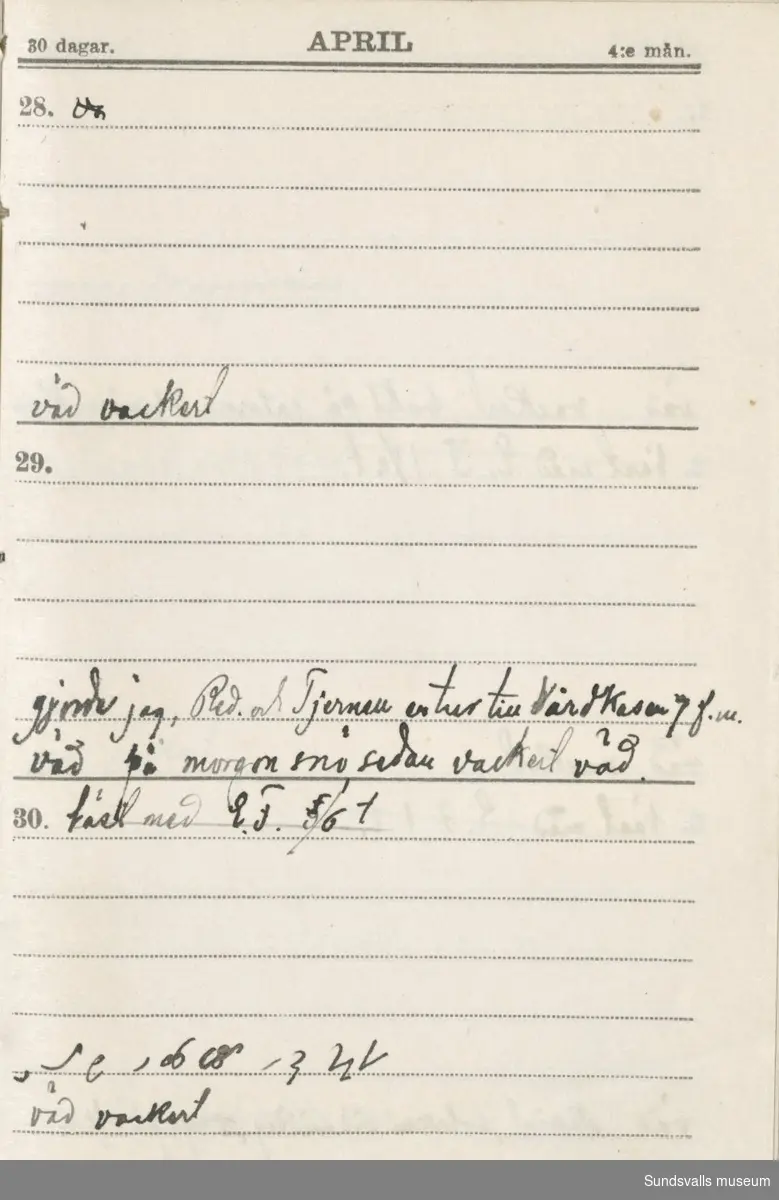 30 dagar. APRIL 4:e mån.
28.
väd vackert
29.
gjorde jag, Red. och Tjernell en tur till Vårdkasen 7 f.m.
väd på morgon snö sedan vackert väd.
30. läst med E. F.
väd vackert
Sundsvalls museum